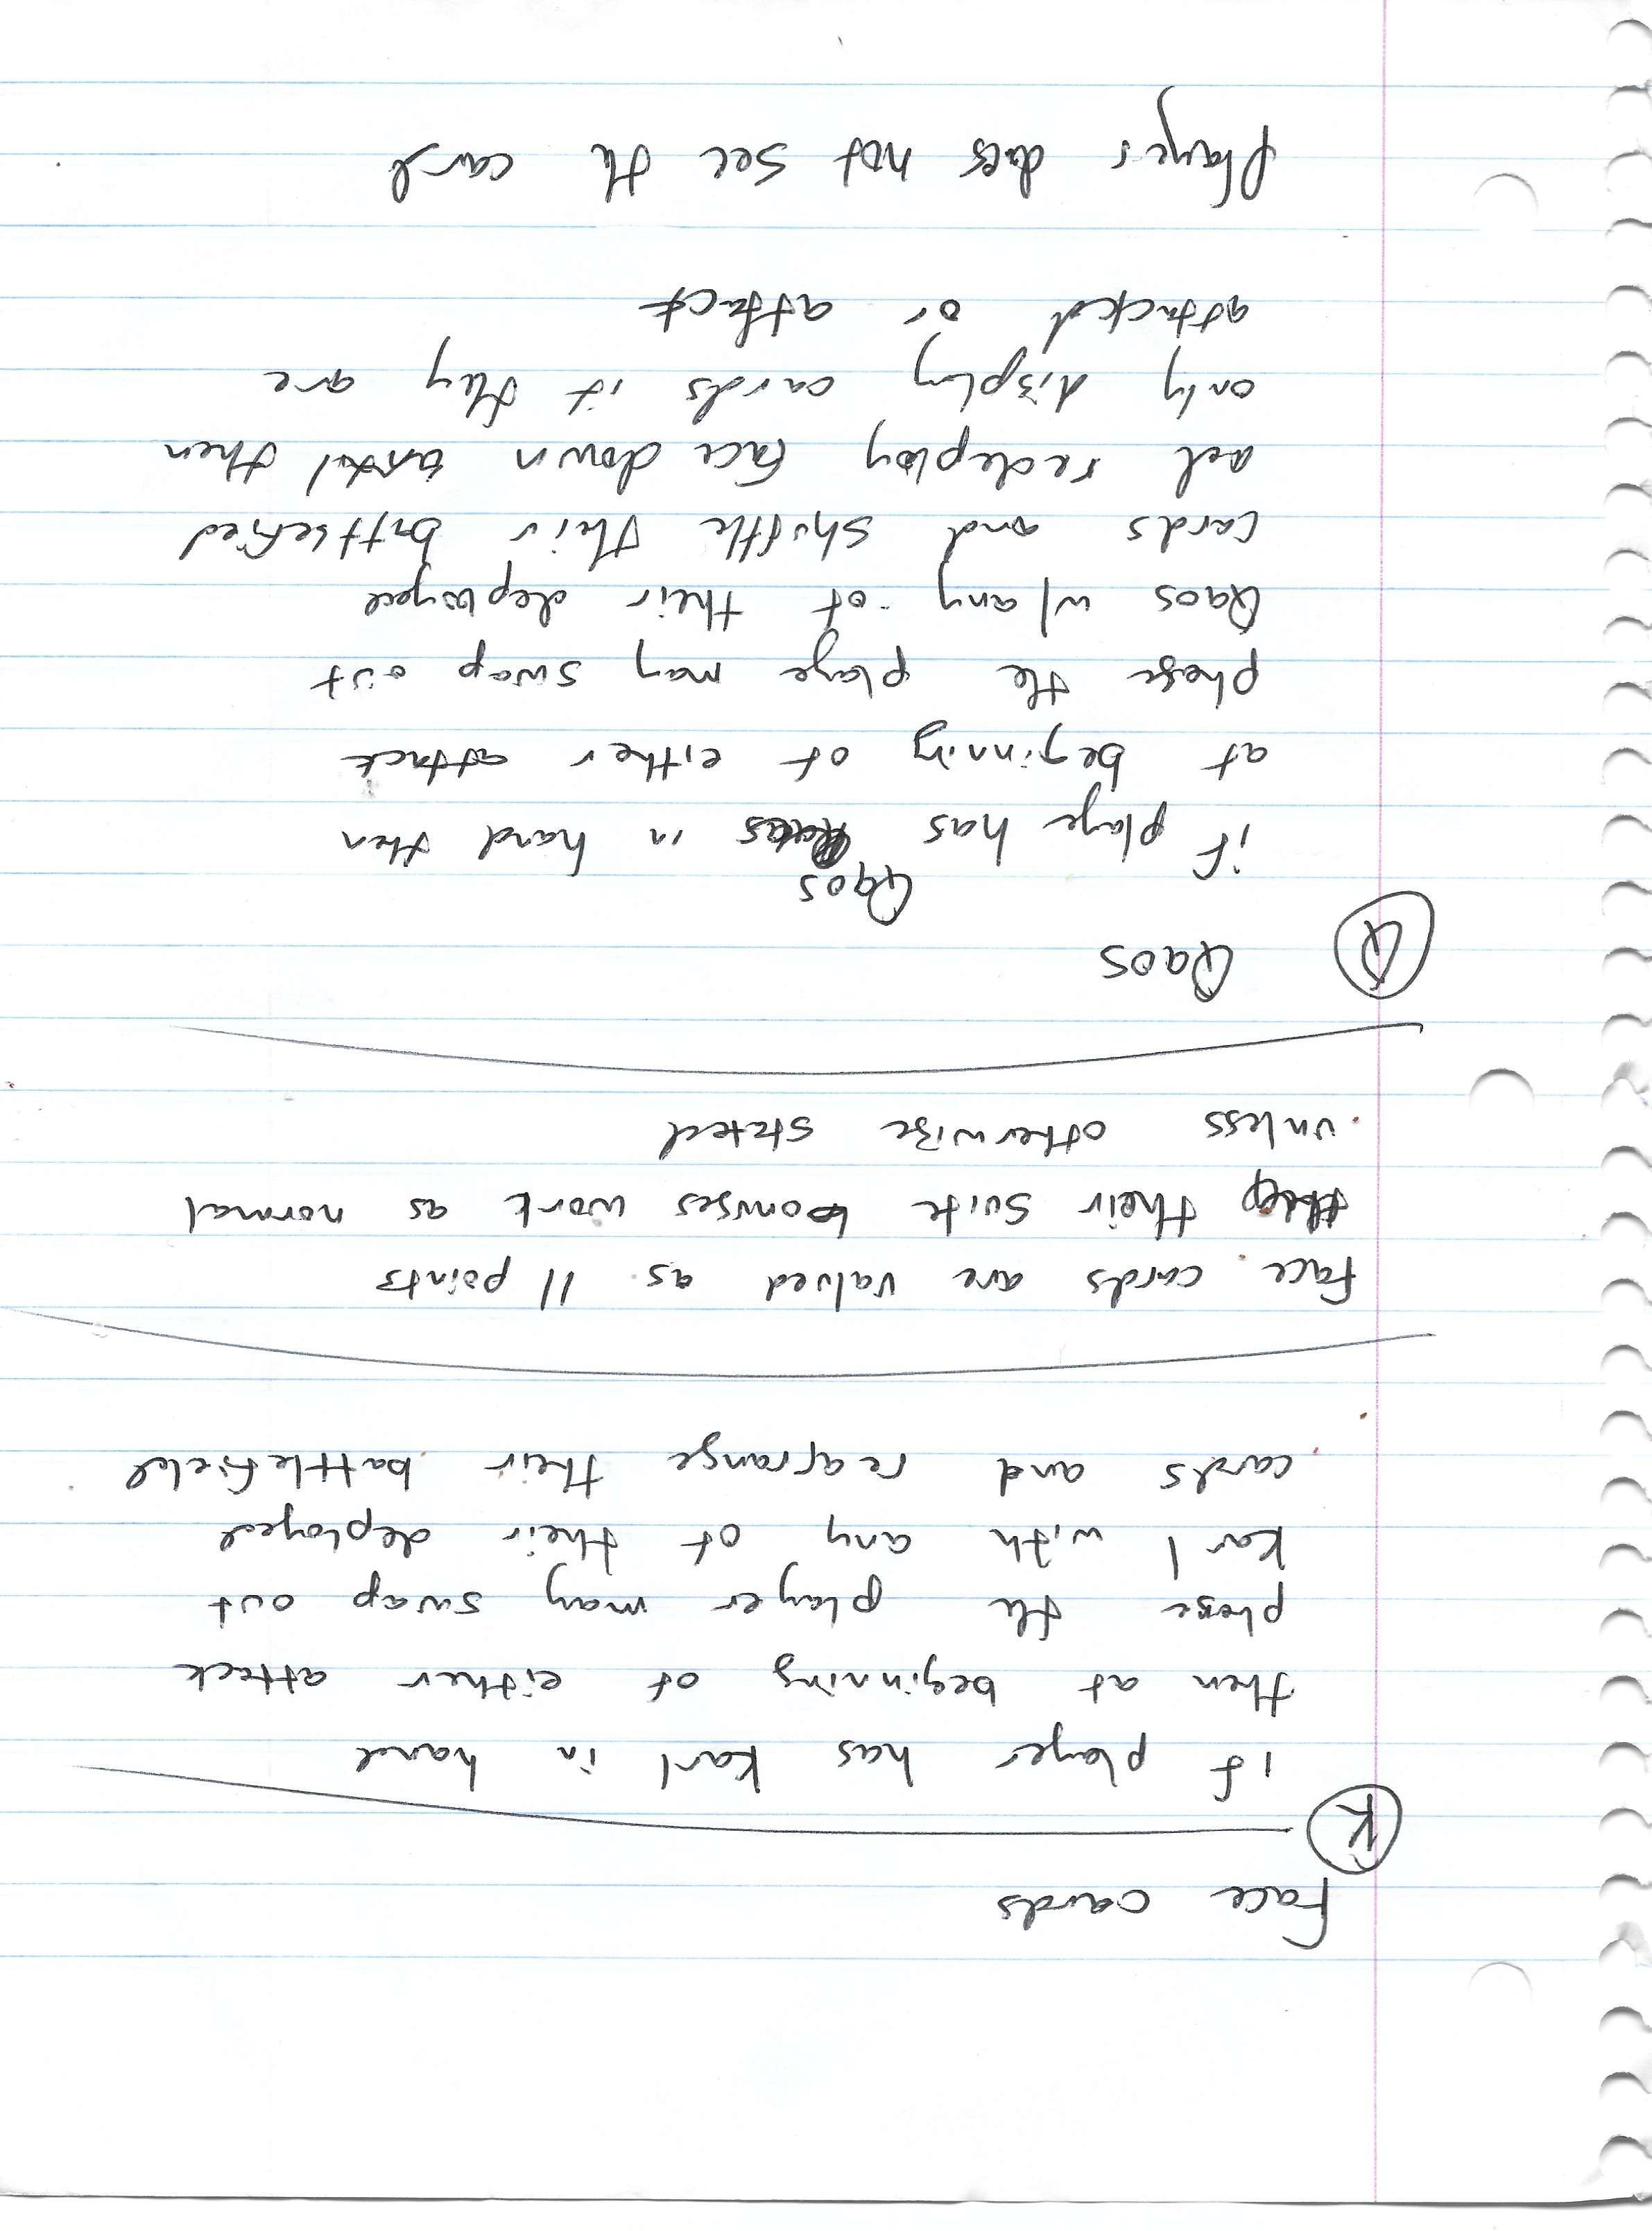 Face cards
K
if player has Karl in hand
then at beginning of either attack
phase the player may swap out
Karl with any of their deployed
cards and rearrange their battlefield
Face cards are valued as 11 points
their suit bonuses work as normal
unless otherwise stated
Q Qaos
Qaos
if playe has in hand then
at beginning of either attack
phase the playe may swap out
Qaos w/any of their deployed
cards and shuffle their battlefied
ad redeploy face down then
only display cards if they are
attacked or attack
Player does not see the card